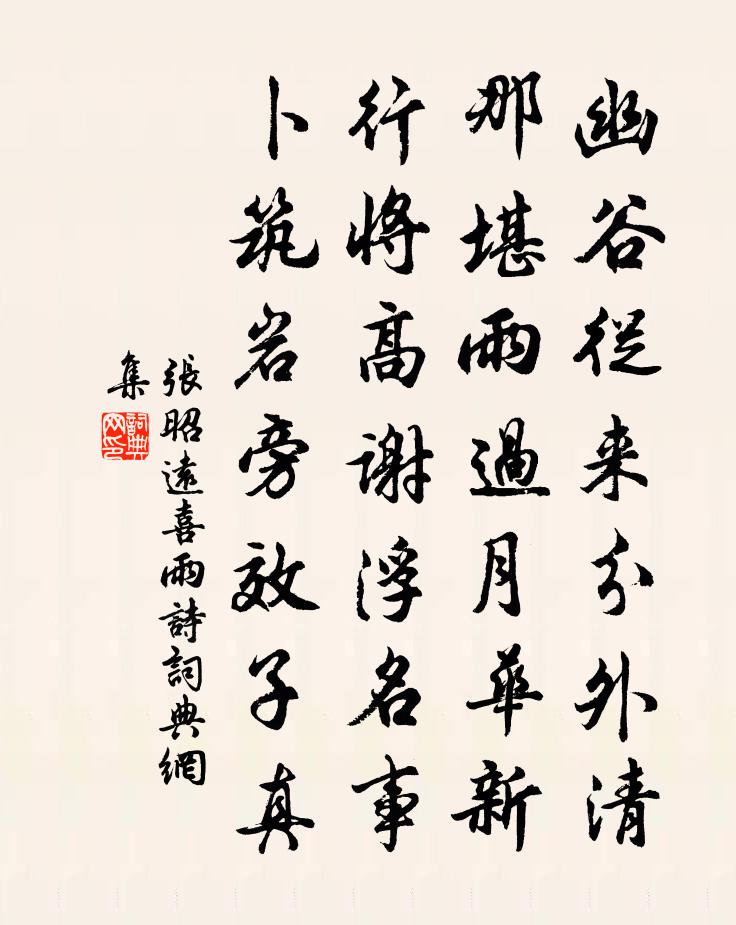 幽谷從来分外清
那堪雨過月華新
行將高謝浮名事
卜筑岩旁效子真
張昭遠喜雨詩詞典網
集
詞典网印